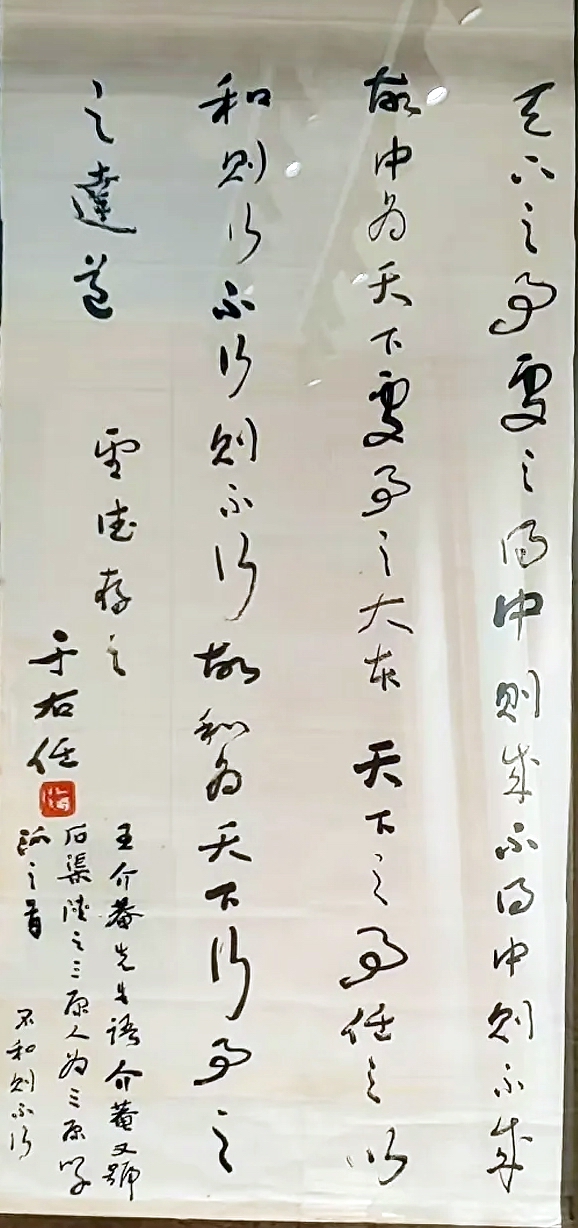 天下之事處之得中則成不得中則不成
故中為天下處事之大本天下之事任之以
和則行不行則不行故和為天下行事之
之達道
德存之
于右任
王介菴先生語介菴又號
石渠陝之三原人為三原學
派之首
不和則不行